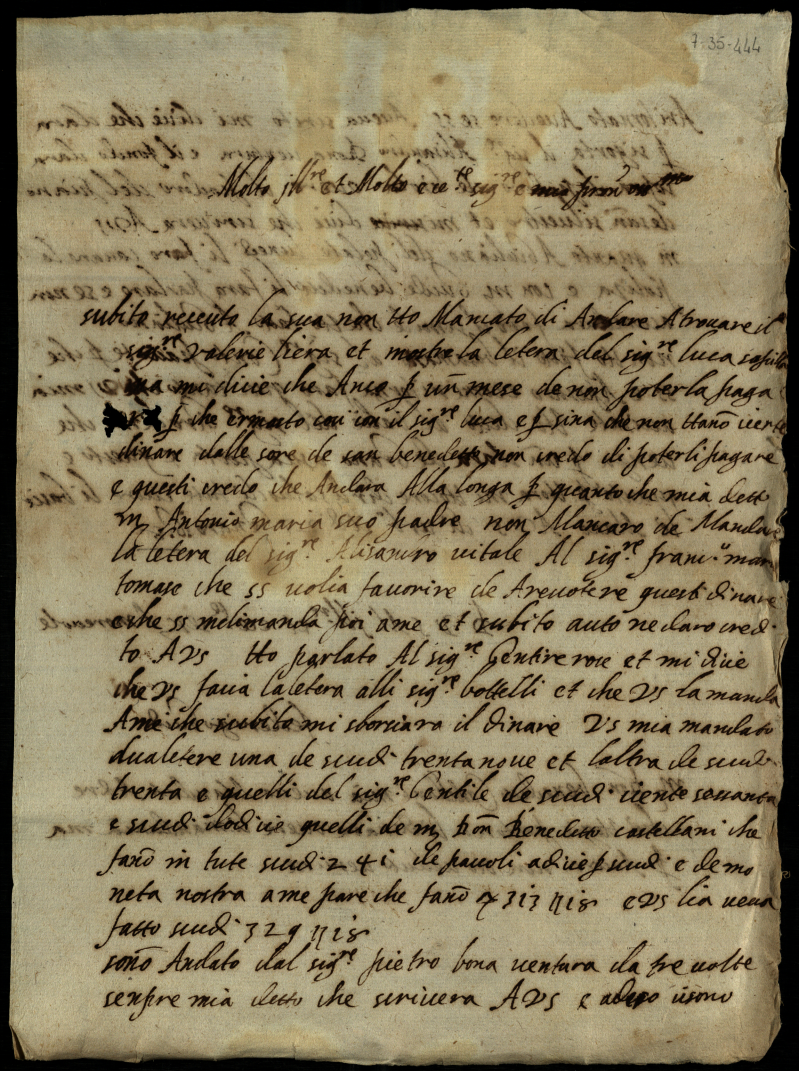 7-35-444
Molto jll.re et Molto ecc.te sig.re e mio
subito receuto la sua non tto Mancato di Andare Atrovare il
sig.re valerie tiera et mostre la letera del sig.re luca
mi dicie che Anco p un mese de non poterla paga
p che ermasto cosi con il sig.re luca e p sina che non ttano certe
dinare dalle sore de san benedette non credo di poterli pagare
e questi credo che Andara Alla longa p quanto che mia dett
m Antonio maria suo padre non Mancaro de Mandare
la letera del sig.re Alisandro vitale Al sig.re franc.o mar
tomase che ss volia favorire de Arescotere questi dinare
e che ss melimanda poi ame et subito auto ne daro credi
to AVS tto parlato Al sig.re Gentile et mi dicie
che vs facia la letera alli sig.re bottelli et che vs la manda
Ame che subito mi sborsiara il dinare vs mia mandato
dua letere una de scudi trenta noue et laltra de scudi
trenta e quelli del sig.re Gentile de scudi ciente sessanta
e scudi dodicie quelli de m don Benedetto castellani che
fano in tute scudi 241 de pauoli adicie p scudi e de mo
neta nostra ame pare che fano 313 e vs lia veva
fatto scudi 329
sono Andato dal sig.re pietro bona ventura da tre volte
senpre mia detto che scrivera AVS e adeso